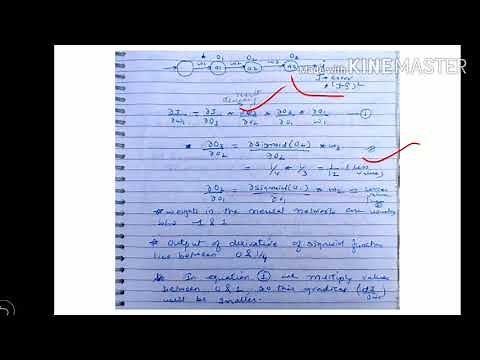 O1 O2 O3
w1 w2 w3
Made with KINEMASTER
J → error
(y-ŷ)²
∂J/∂w1 = ∂J/∂O3 * ∂O3/∂O2 * ∂O2/∂O1 * ∂O1/w1 — ①
* ∂O3/∂O2 = ∂Sigmoid(O2)/∂O2 * w3
= 1/4 * 1/3 = 1/12 (less value)
∂O2/∂O1 = ∂Sigmoid(O1)/∂O1 * w2 =
# weights in the neural networks are usually
b/w -1 & 1
* Output of derivative of sigmoid function
lie between 0 & 1/4
In equation ① we multiply values
between 0 & 1, so this gradient
will be smaller.